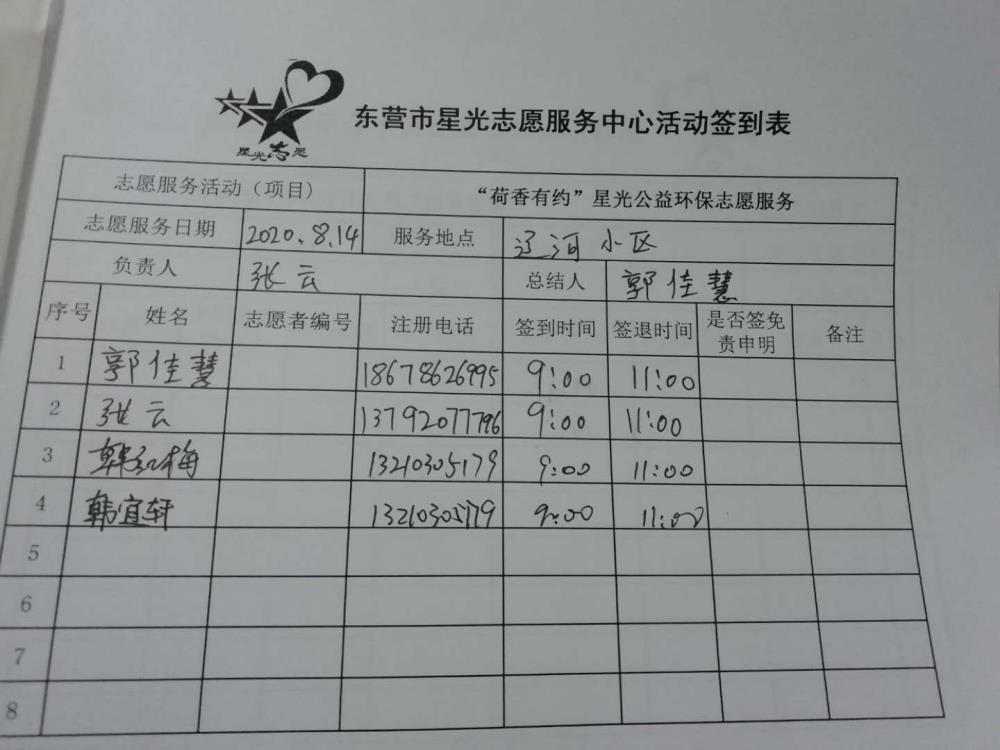 星光志愿
东营市星光志愿服务中心活动签到表
志愿服务活动（项目） “荷香有约”星光公益环保志愿服务
志愿服务日期 2020.8.14 服务地点 辽河小区
负责人 张云 总结人 郭佳慧
序号 姓名 志愿者编号 注册电话 签到时间 签退时间 是否签免责申明 备注
1 郭佳慧 18678626995 9:00 11:00
2 张云 13792077796 9:00 11:00
3 韩红梅 13210305179 9:00 11:00
4 韩宜轩 13210305179 9:00 11:00
5
6
7
8